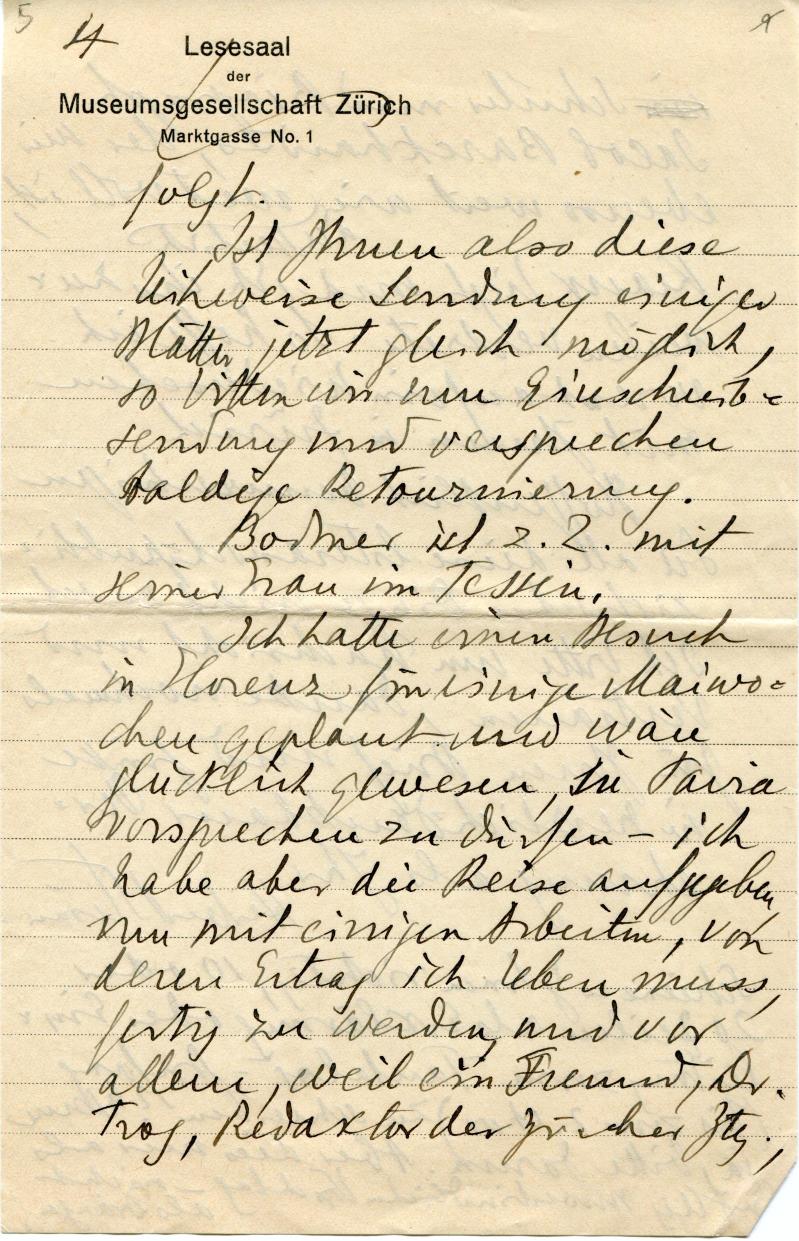 5
4
Lesesaal
der
Museumsgesellschaft Zürich
Marktgasse No. 1
folgt.
Ist Ihnen also diese
leihweise Sendung einiger
Blätter jetzt gleich möglich,
so bitten wir um Einschreib-
sendung und versprechen
baldige Retournierung.
Bodmer ist z. Z. mit
seiner Frau im Tessin.
Ich hatte einen Besuch
in Florenz für einige Maiwo-
chen geplant und wäre
glücklich gewesen, in Pavia
vorsprechen zu dürfen – ich
habe aber die Reise aufgegeben,
um mit einigen Arbeiten, von
deren Ertrag ich leben muss,
fertig zu werden, und vor
allem, weil ein Freund, Dr.
Trog, Redaktor der Zürcher Ztg.,